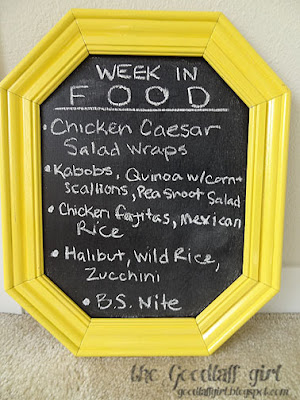 WEEK IN
FOOD
• Chicken Caesar
Salad Wraps
• Kabobs, Quinoa w/corn+
scallions, Pea Shoot Salad
• Chicken fajitas, Mexican
Rice
• Halibut, Wild Rice,
Zucchini
• B.S. Nite
the Goodlaff girl
goodlaffgirl.blogspot.com